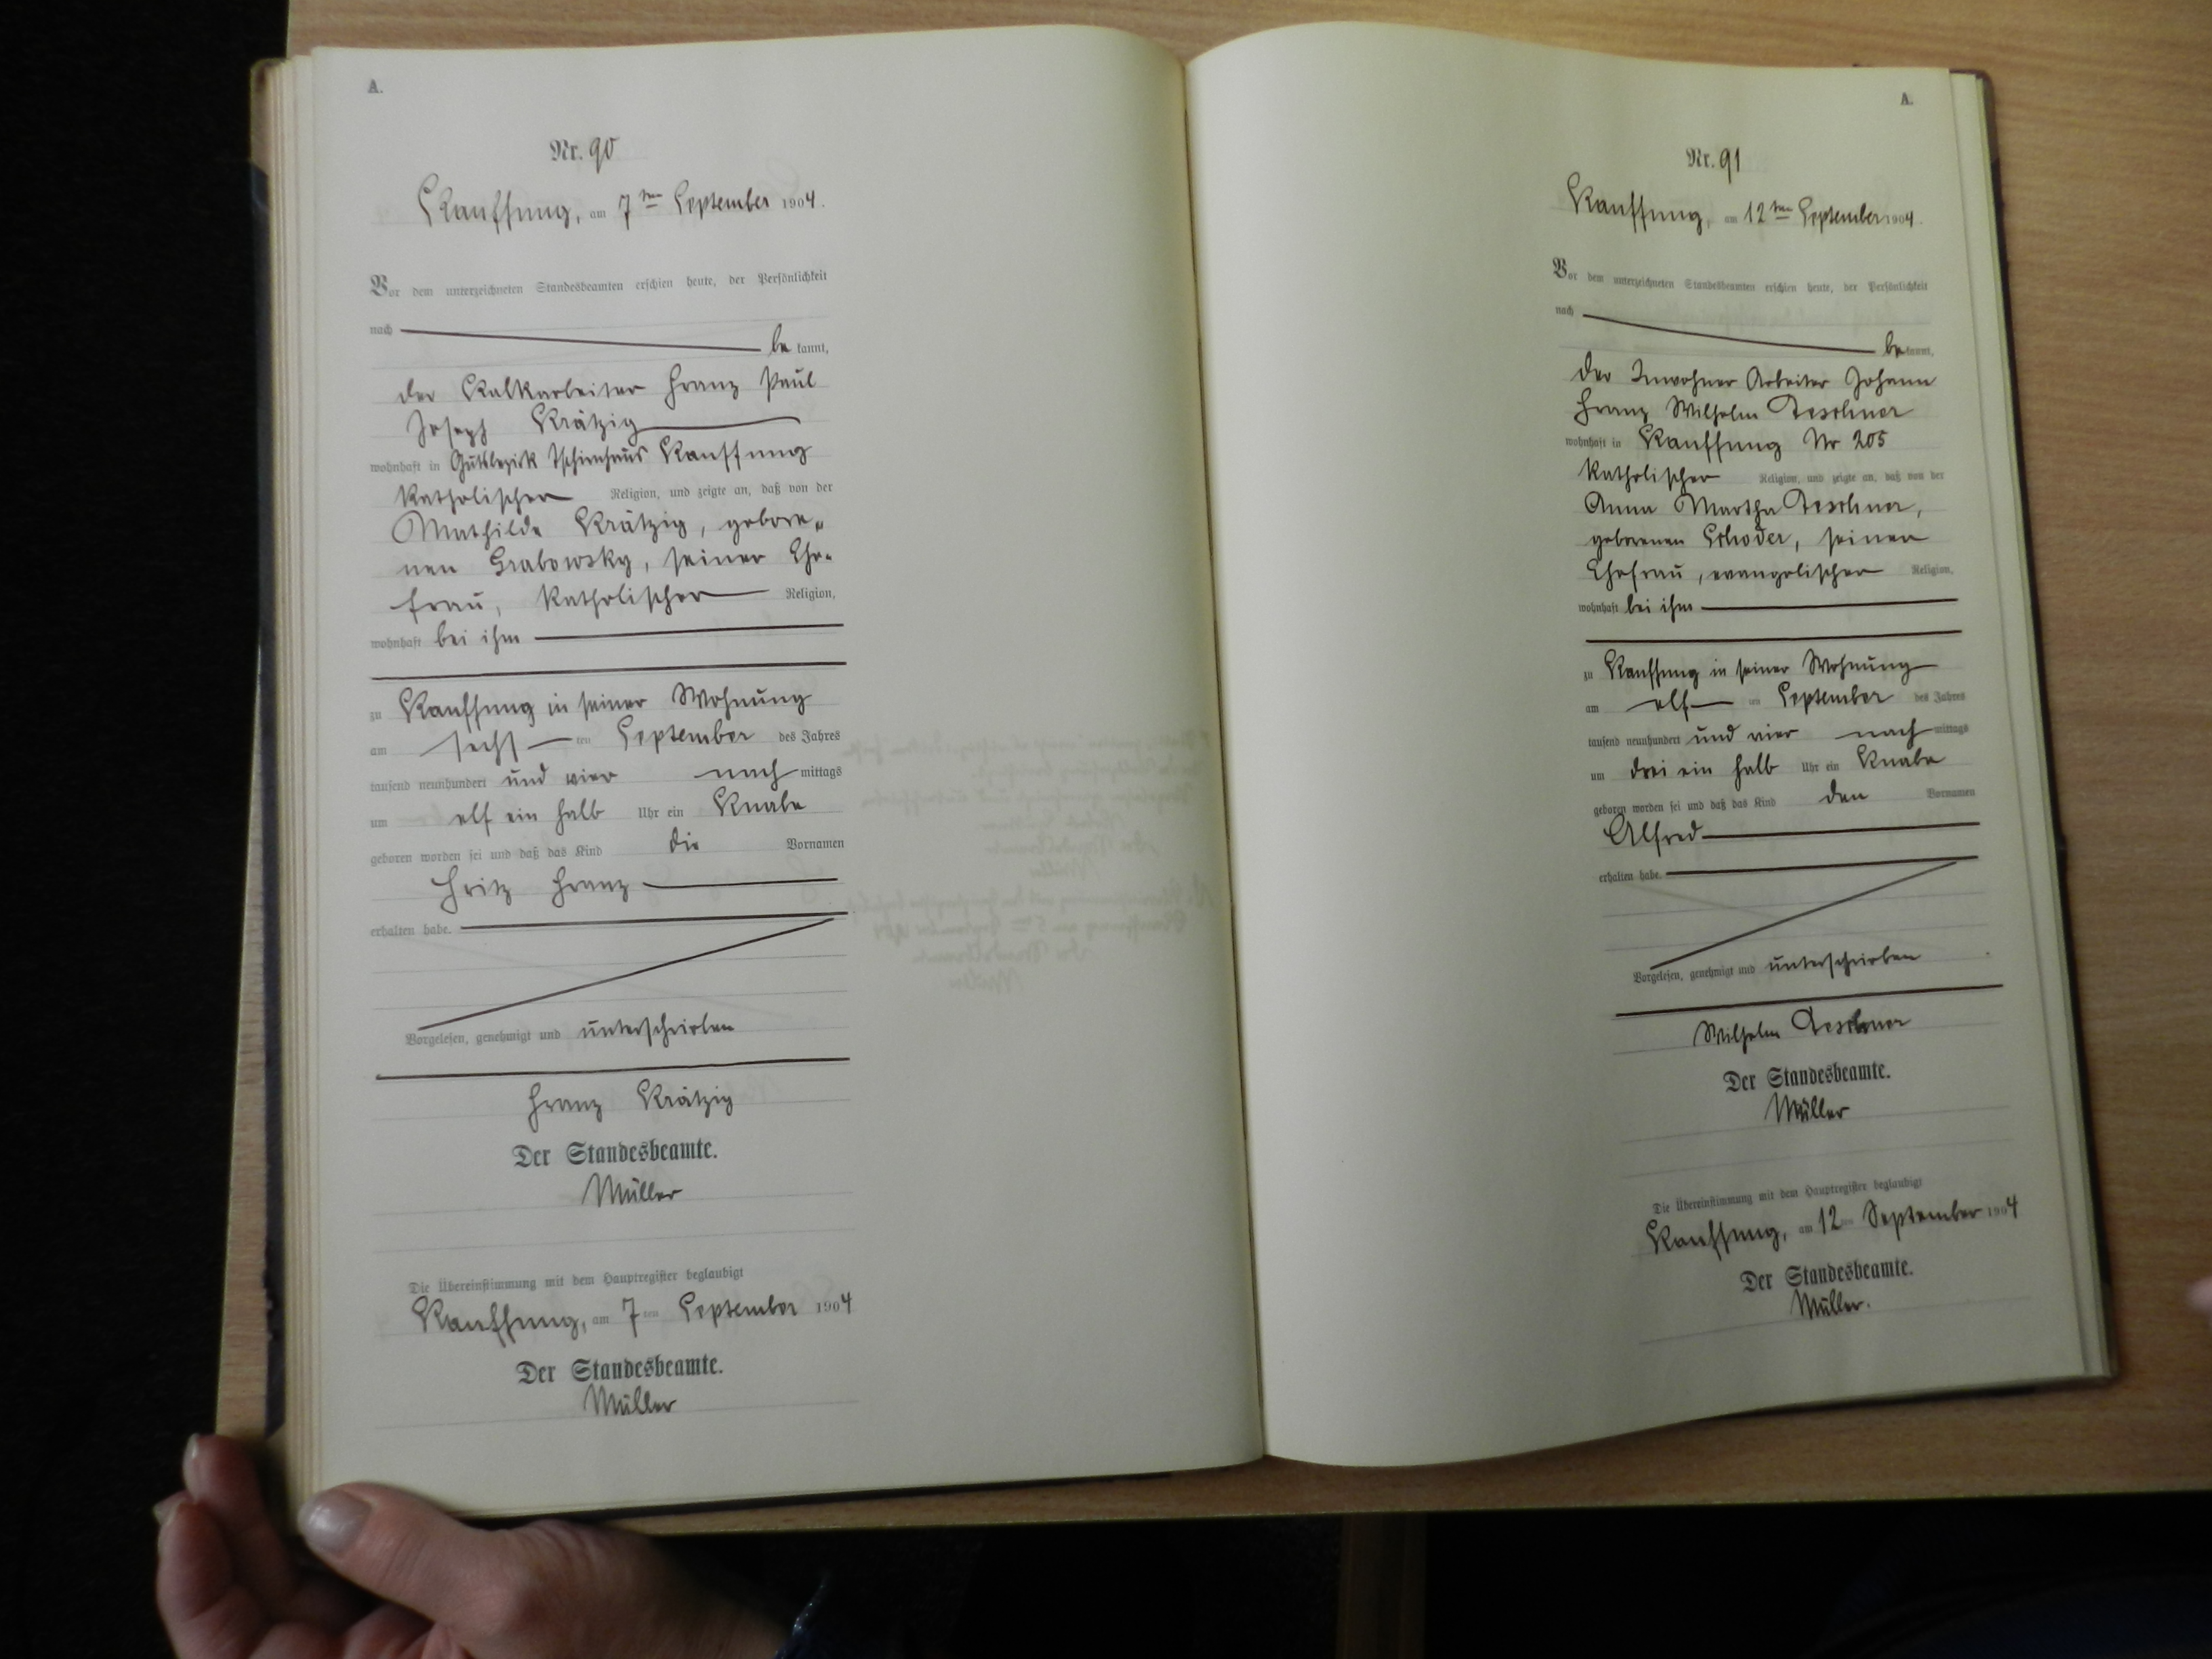 A.
Nr. 90
Kauffung, am 7ten September 1904.
Vor dem unterzeichneten Standesbeamten erschien heute, der Persönlichkeit
nach
bekannt,
der Kalkarbeiter Franz Paul
Joseph Krätzig
wohnhaft in Gutsbezirk Tschirnhaus Kauffung
katholischer Religion, und zeigte an, daß von der
Mathilde Krätzig, gebore-
nen Grabowsky, seiner Ehe-
frau, katholischer Religion,
wohnhaft bei ihm
zu Kauffung in seiner Wohnung
am sechsten September des Jahres
tausend neunhundert und vier nachmittags
um elf ein halb Uhr ein Knabe
geboren worden sei und daß das Kind die Vornamen
Fritz Franz
erhalten habe.
Vorgelesen, genehmigt und unterschrieben
Franz Krätzig
Der Standesbeamte.
Müller
Die Übereinstimmung mit dem Hauptregister beglaubigt
Kauffung, am 7ten September 1904
Der Standesbeamte.
Müller
A.
Nr. 91
Kauffung, am 12ten September 1904.
Vor dem unterzeichneten Standesbeamten erschien heute, der Persönlichkeit
nach
bekannt,
der Inwohner Arbeiter Johann
Franz Wilhelm Teschner
wohnhaft in Kauffung Nr 205
katholischer Religion, und zeigte an, daß von der
Anna Martha Teschner,
geborenen Schoder, seiner
Ehefrau, evangelischer Religion,
wohnhaft bei ihm
zu Kauffung in seiner Wohnung
am elften September des Jahres
tausend neunhundert und vier nachmittags
um drei ein halb Uhr ein Knabe
geboren worden sei und daß das Kind den Vornamen
Alfred
erhalten habe.
Vorgelesen, genehmigt und unterschrieben
Wilhelm Teschner
Der Standesbeamte.
Müller
Die Übereinstimmung mit dem Hauptregister beglaubigt
Kauffung, am 12ten September 1904
Der Standesbeamte.
Müller.